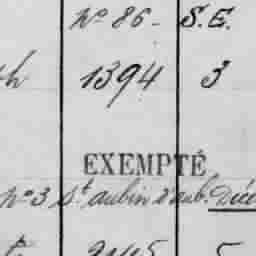 nº 86 - S.E.
1394 3
EXEMPTÉ
nº 3 St. aubin d'aub. Déc
5